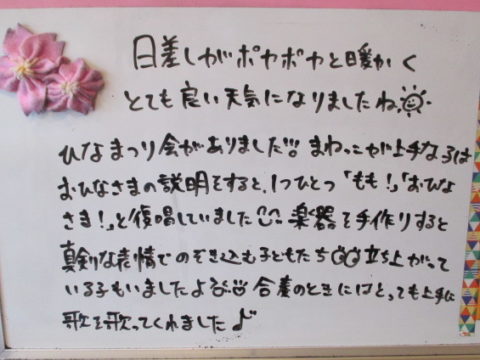 日差しがポカポカと暖かく
とても良い天気になりましたね。
ひなまつり会がありました!!! まねっこが上手な子は
おひなさまの説明をすると、1つひとつ「もも!」「おひな
さま!」と復唱していました 楽器を手作りすると
真剣な表情でのぞき込む子どもたち 立ち上がって
いる子もいましたよ 合奏のときにはとっても上手に
歌を歌ってくれました♪